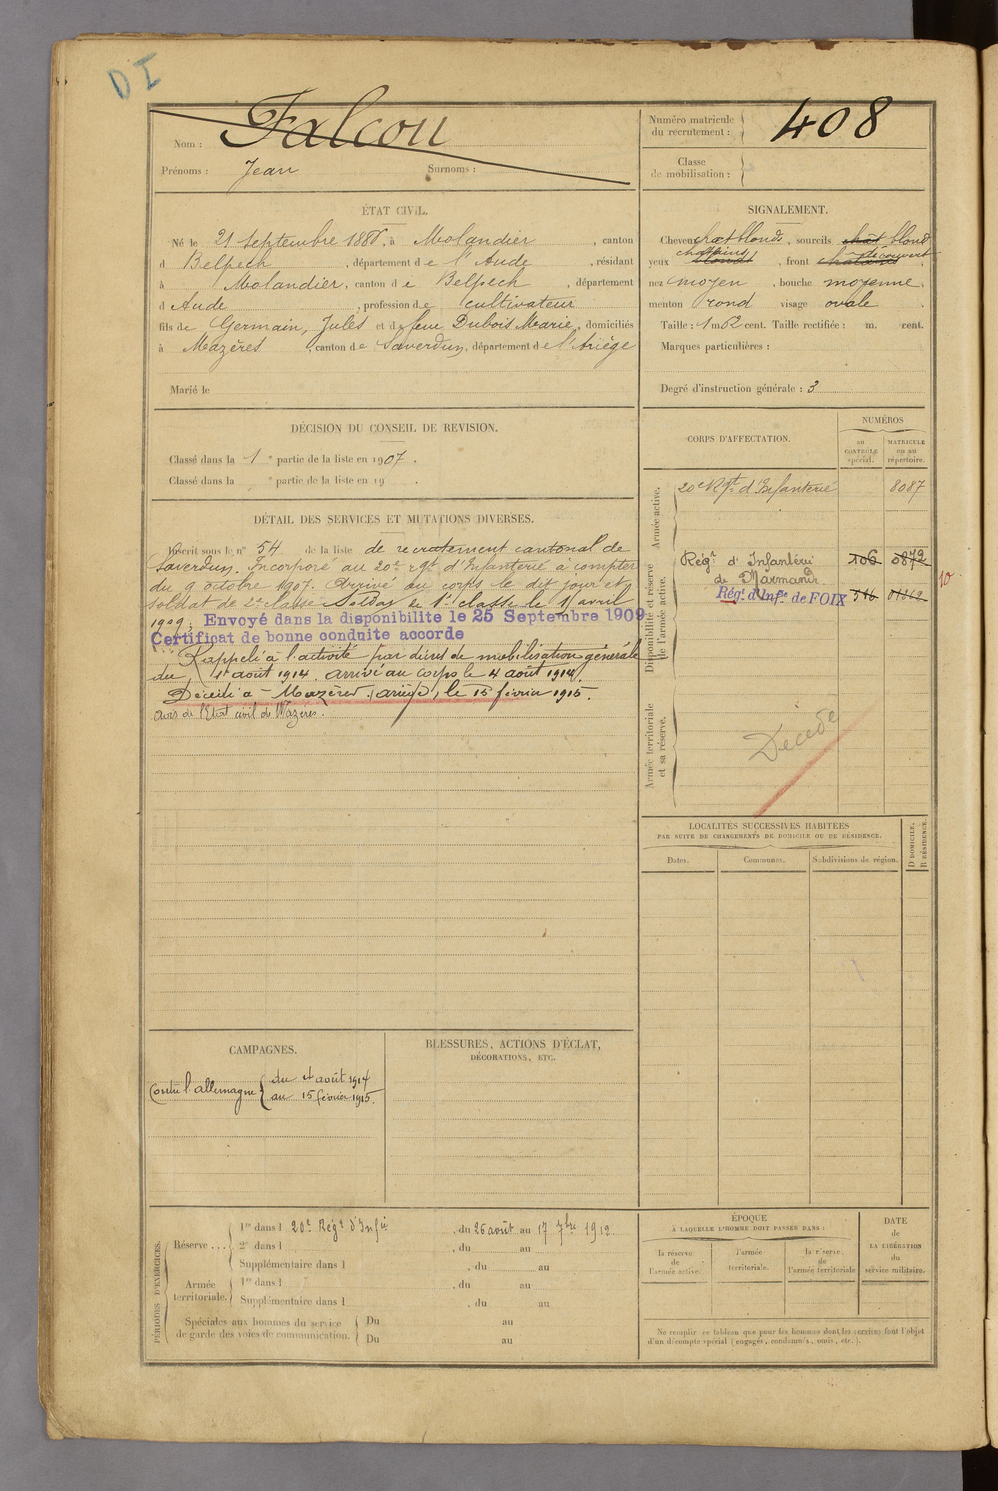 DI
Nom : Falcou
Prénoms : Jean Surnoms :
Numéro matricule du recrutement : 408
Classe de mobilisation :
ÉTAT CIVIL.
Né le 21 septembre 1886, à Molandier, canton
d Belpech, département de l'Aude, résidant
à Molandier, canton de Belpech, département
d Aude, profession de cultivateur
fils de Germain, Jules et de feue Dubois Marie, domiciliés
à Mazères, canton de Saverdun, département de l'Ariège
Marié le
SIGNALEMENT.
Cheveux chat blonds, sourcils chât blond
yeux blond chatains, front découvert
nez moyen, bouche moyenne,
menton rond visage ovale
Taille : 1 m 62 cent. Taille rectifiée : m. cent.
Marques particulières :
Degré d'instruction générale : 3
DÉCISION DU CONSEIL DE REVISION.
Classé dans la 1 e partie de la liste en 1907.
Classé dans la e partie de la liste en 19 .
DÉTAIL DES SERVICES ET MUTATIONS DIVERSES.
Inscrit sous le n° 54 de la liste de recrutement cantonal de
Saverdun. Incorporé au 20e Rgt d'Infanterie à compter
du 9 octobre 1907. Arrivé au corps le dit jour et
soldat de 2e classe Soldat de 1e classe le 11 avril
1909. Envoyé dans la disponibilité le 25 Septembre 1909
Certificat de bonne conduite accorde
Rappelé à l'activité par décret de mobilisation générale
du 1er août 1914. arrivé au corps le 4 août 1914.
Décédé à Mazères (ariège) le 15 février 1915.
avis de l'Etat civil de Mazères.
CORPS D'AFFECTATION.
NUMÉROS
au CONTRÔLE spécial.
MATRICULE ou au répertoire.
Armée active.
20e Rgt d'Infanterie 8087
Disponibilité et réserve de l'armée active.
Régt d'Infanterie de Marmande 106 0872
Rég. d'Infie de FOIX 516 10
Armée territoriale et sa réserve.
Décédé
LOCALITÉS SUCCESSIVES HABITÉES
PAR SUITE DE CHANGEMENTS DE DOMICILE OU DE RÉSIDENCE.
Dates. Communes. Subdivisions de région. D DOMICILE. R RÉSIDENCE.
CAMPAGNES.
Contre l'allemagne { du 4 août 1914
au 15 février 1915.
BLESSURES, ACTIONS D'ÉCLAT,
DÉCORATIONS, ETC.
PÉRIODES D'EXERCICES.
Réserve ... 1re dans l 20e Régt d'Infie, du 26 août au 17 7bre 1912.
2e dans l , du au
Supplémentaire dans l , du au
Armée territoriale. 1re dans l , du au
Supplémentaire dans l , du au
Spéciales aux hommes du service de garde des voies de communication. Du au
Du au
ÉPOQUE
À LAQUELLE L'HOMME DOIT PASSER DANS :
la réserve de l'armée active.
l'armée territoriale.
la réserve de l'armée territoriale
DATE
de
LA LIBÉRATION
du
service militaire.
Ne remplir ce tableau que pour les hommes dont les services font l'objet
d'un décompte spécial (engagés, condamnés, omis, etc.).